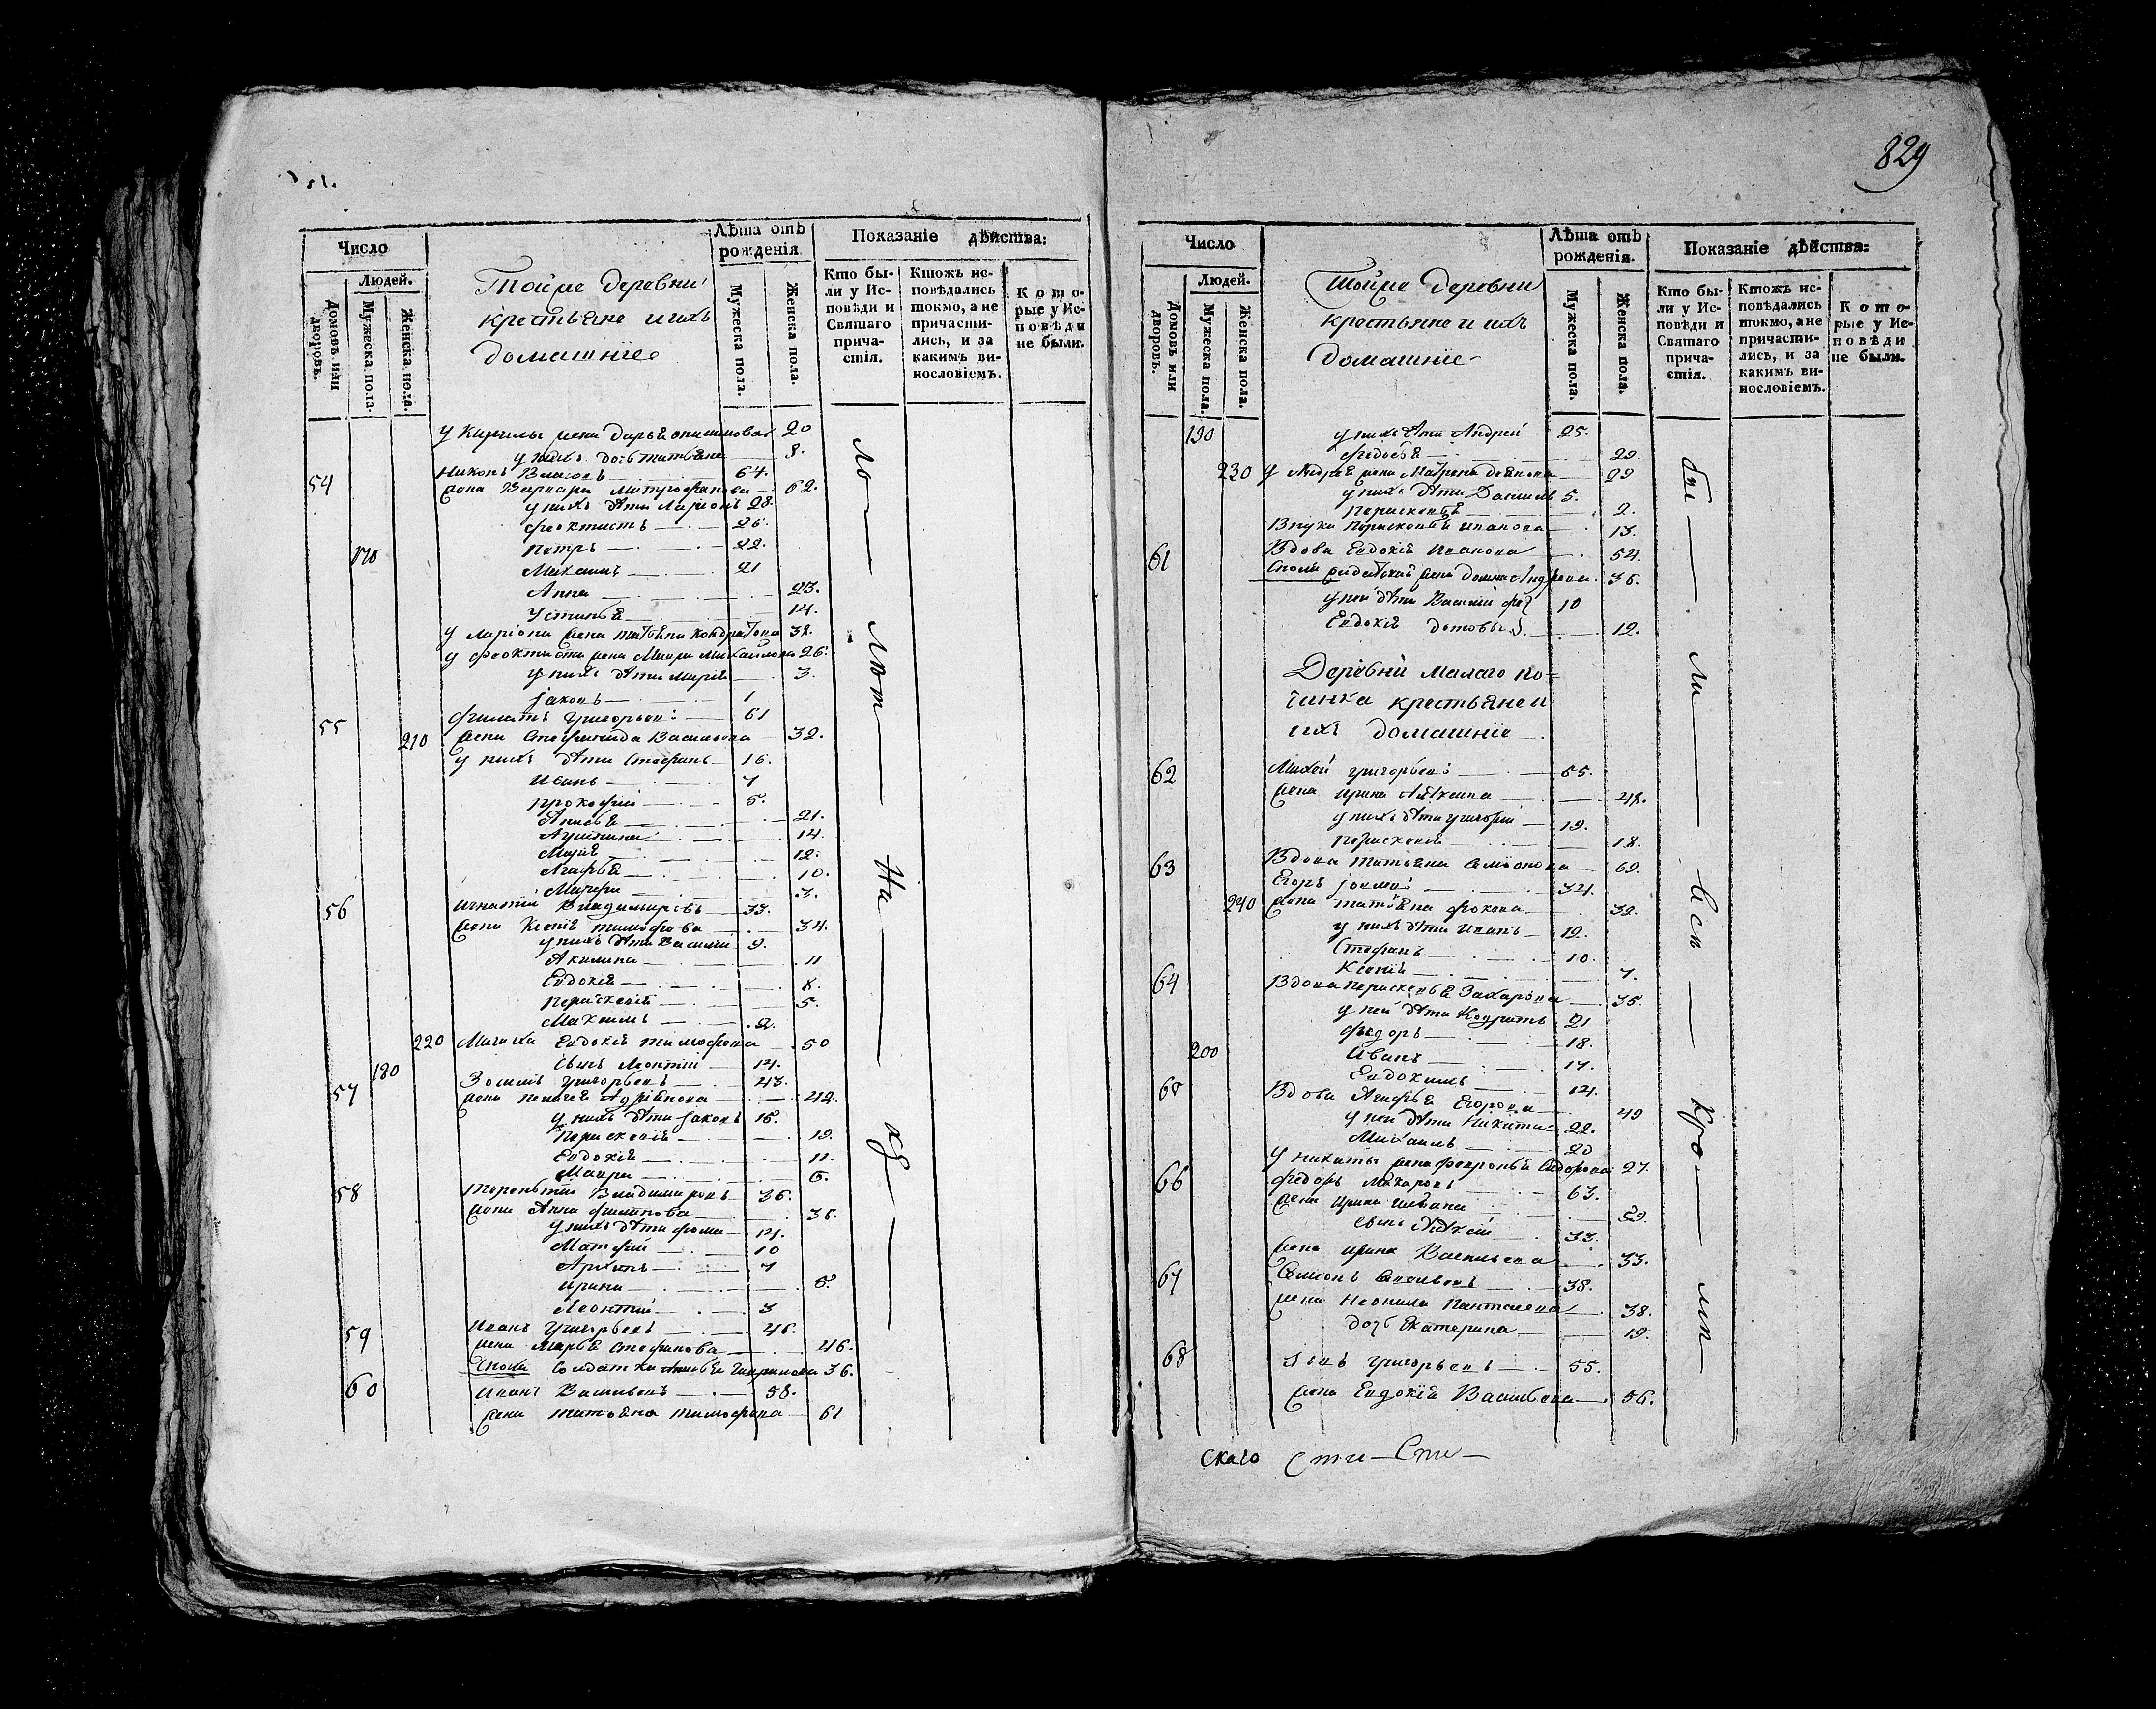 Число
Людей.
Домовъ или дворовъ.
Мужеска пола.
Женска пола.
Тойже деревни
крестьяне и ихъ
домашніе
Лѣта отъ рожденія.
Мужеска пола.
Женска пола.
Показаніе дѣйства:
Кто были у Исповѣди и Святаго причастія.
Ктожъ исповѣдались токмо, а не причастились, и за какимъ винословіемъ.
Которые у Исповѣди не были.
у Кирилы жена Дарья Анисимова 20
у нихъ дочь Татьяна 8.
54 Никонъ Власовъ 64.
жена Варвара Митрофанова 62.
у нихъ дѣти Ларіонъ 28.
Феоктистъ 26.
170 Петръ 22.
Максимъ 21
Анна 23.
Устинья 14.
у Ларіона жена Татьяна Кондратова 32.
у Феоктиста жена Мавра Михайлова 26.
у нихъ дѣти Марія 3.
Іаковъ 1
55 Филатъ Григорьевъ 61
210 жена Стефанида Васильева 32.
у нихъ дѣти Стефанъ 16.
Иванъ 7
Прокофій 5.
Анисья 21.
14.
Марія 12.
Агафья 10.
Марфа 3.
56 Игнатій Владимировъ 33.
жена Ксенія Тимофѣева 34.
у нихъ дѣти Василій 9.
Акилина 11
Евдокія 8.
Параскевія 5.
Максимъ 2.
220 Мачиха Евдокія Тимофѣева 50
180 сынъ Леонтій 14.
57 Зосимъ Григорьевъ 43.
жена Пелагея Андрѣянова 42.
у нихъ дѣти Іаковъ 15.
Параскевія 19.
Евдокія 11.
Мавра 6.
58 Терентій Владимировъ 36.
жена Анна Филипова 36.
у нихъ дѣти Фома 14.
Матфей 10
Архипъ 7
Ирина 5.
Леонтій 3
59 Иванъ Григорьевъ 46.
жена Марья Стефанова 46.
Сноха Солдатка Гавриилова 36.
60 Иванъ Васильевъ 58.
жена Татьяна Тимофѣева 61
829
Число
Людей.
Домовъ или дворовъ.
Мужеска пола.
Женска пола.
Тойже деревни
крестьяне и ихъ
домашніе
Лѣта отъ рожденія.
Мужеска пола.
Женска пола.
Показаніе дѣйства:
Кто были у Исповѣди и Святаго причастія.
Ктожъ исповѣдались токмо, а не причастились, и за какимъ винословіемъ.
Которые у Исповѣди не были.
190 у нихъ дѣти Андрей 25.
Федосья 29.
230 у Андрея жена Матрена 29
у нихъ дѣти Даниилъ 5.
Парасковья 2.
Внука Парасковья Иванова 13.
61 Вдова Евдокія Иванова 54.
Сноха жена Домна 36.
у ней дѣти Василій 10
Евдокія 12.
Деревни Малаго По=
чинка крестьяне и
ихъ домашніе
62 Михей Григорьевъ 55.
жена Ирина 48.
у нихъ дѣти Григорій 19.
Парасковія 18.
63 Вдова Татьяна Семіонова 69.
Егоръ 34.
240 жена Татьяна Фокеева 32.
у нихъ дѣти Иванъ 12.
Стефанъ 10.
Ксенія 7.
64 Вдова Парасковья Захарова 35.
у ней дѣти Кодратъ 21
Федоръ 18.
200 Иванъ 17.
Евдокимъ 14.
65 Вдова Агафья Егорова 49
у ней дѣти Никита 22.
Михаилъ 20
у Никиты жена Февронья Сидорова 27.
66 Федоръ Макаровъ 63.
жена Ирина 59.
сынъ 33.
жена Ирина Васильева 33.
67 Семіонъ 38.
жена Неонила 38.
дочь Екатерина 12.
68 Григорьевъ 55.
жена Евдокія Васильева 56.
скаго